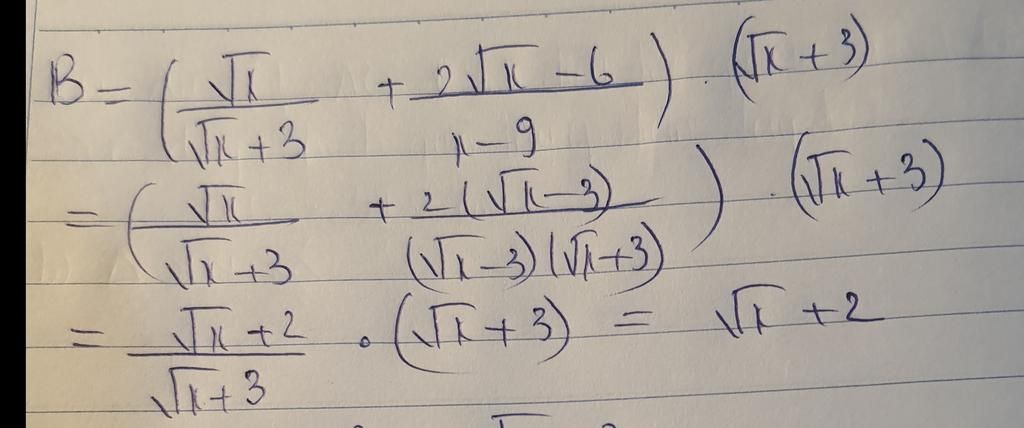 B = (√x / (√x + 3) + (2√x - 6) / (x - 9)) · (√x + 3)
= (√x / (√x + 3) + 2(√x - 3) / ((√x - 3)(√x + 3))) · (√x + 3)
= (√x + 2) / (√x + 3) · (√x + 3) = √x + 2